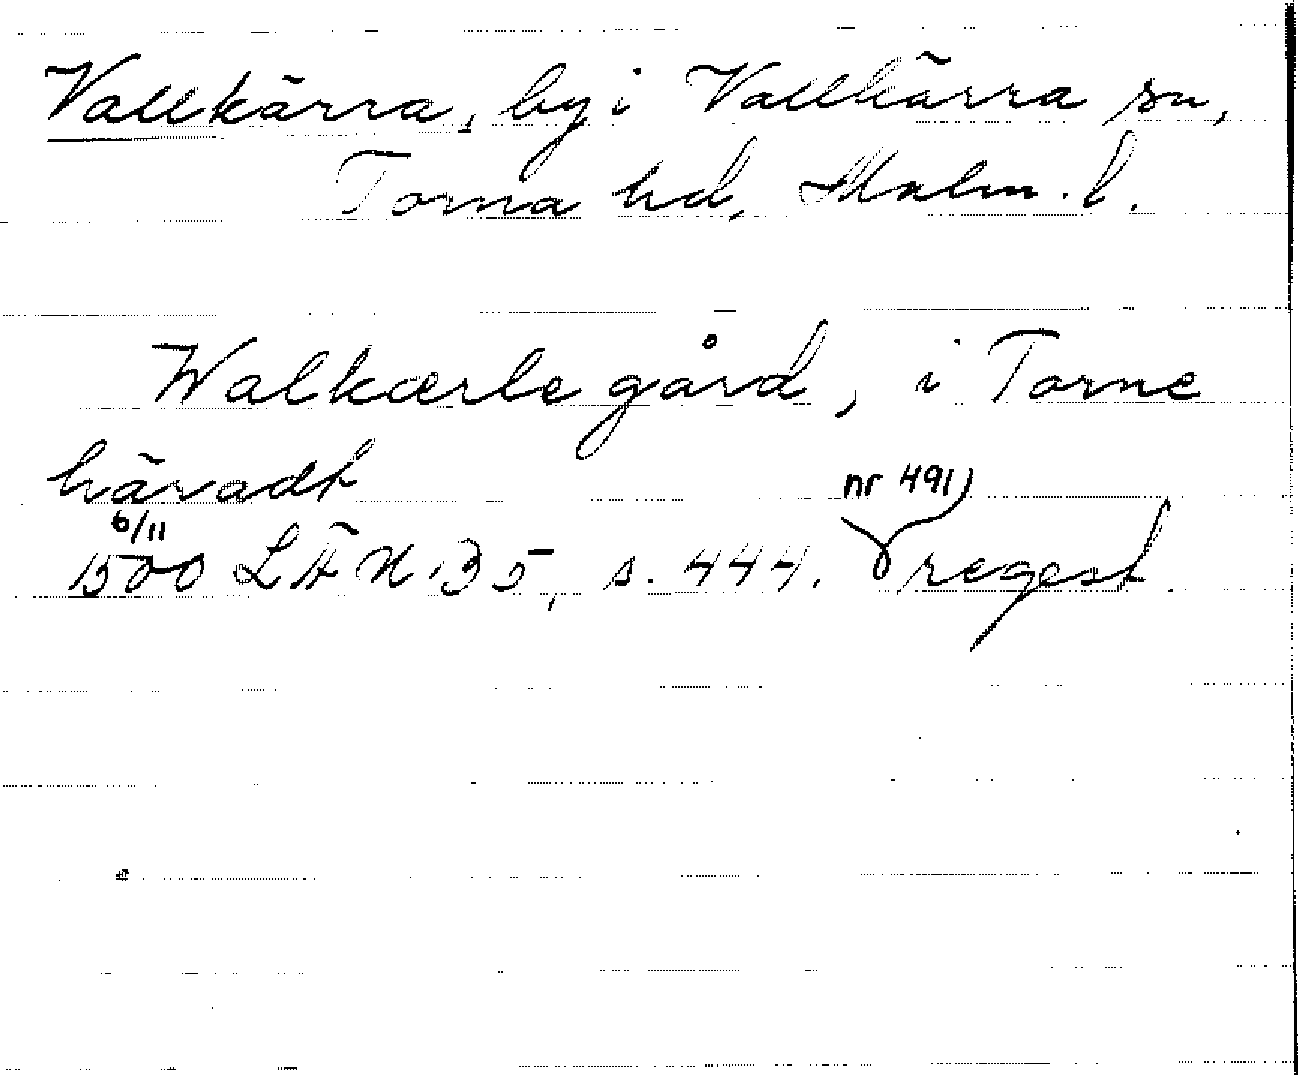 Vallkärra, by i Vallkärra sn,
Torna hd, Malm. l.
Walkærle gård, i Torne
häradt
6/11 nr 491)
1500 LÄU 35, s. 444. regest.